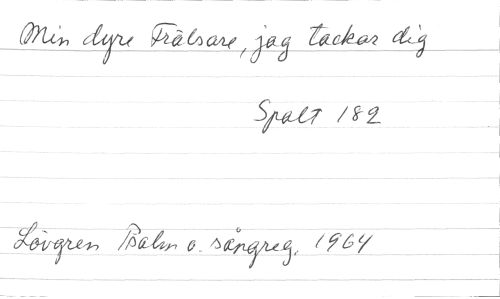 Min dyre Frälsare, jag tackar dig
Spalt 182
Lövgren Psalm o. sångreg. 1964